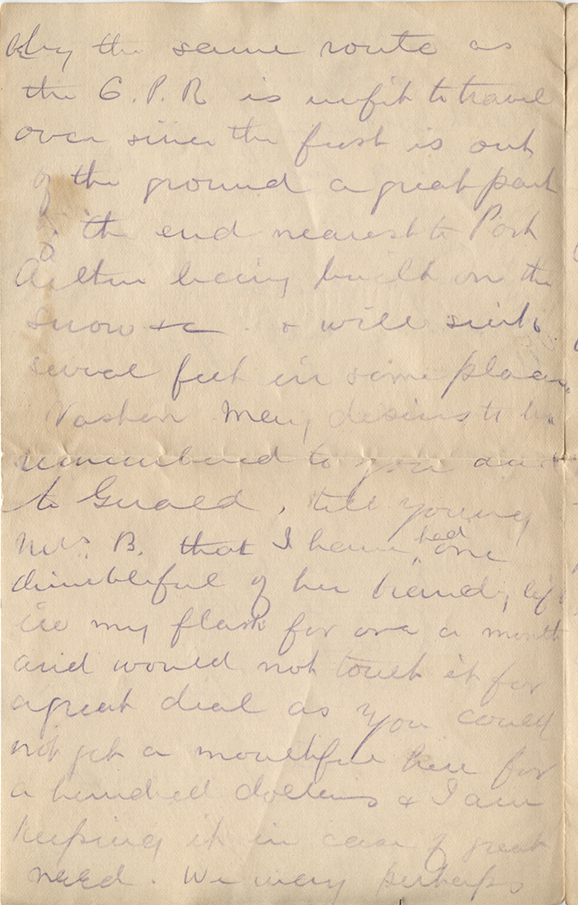 by the same route as
the C.P.R is unfit to travel
over since the frost is out
of the ground a great part
of the end nearest to Port
Arthur being built on the
snow &c & will sink
several feet in some places
Men desires to be
remembered to you and
to Gerald, tell young
Mrs. B. that I have had one
thimbleful of her brandy left
in my flask for over a month
and would not touch it for
a great deal as you could
not get a mouthful here for
a hundred dollars & I am
keeping it in case of great
need. We may perhaps